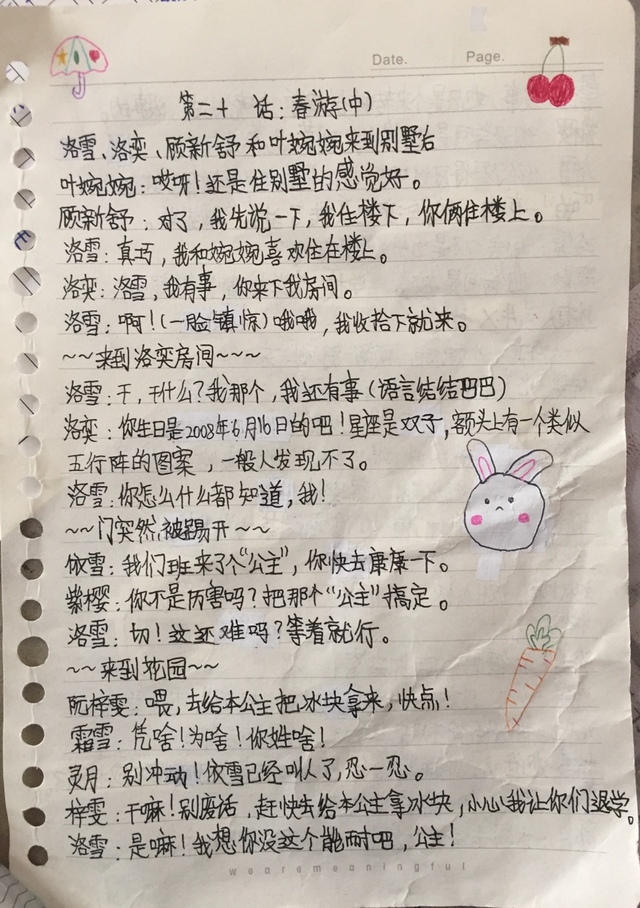 Date.
Page.
第二十 话：春游(中)
洛雪、洛奕、顾新舒和叶婉婉来到别墅后
叶婉婉：哎呀！还是住别墅的感觉好。
顾新舒：对了，我先说一下，我住楼下，你俩住楼上。
洛雪：真巧，我和婉婉喜欢住在楼上。
洛奕：洛雪，我有事，你来下我房间。
洛雪：啊！(一脸镇惊)哦哦，我收拾下就来。
~~来到洛奕房间~~~
洛雪：干，干什么？我那个，我还有事(语言结结巴巴)
洛奕：你生日是2008年6月16日的吧！星座是双子，额头上有一个类似
五行阵的图案，一般人发现不了。
洛雪：你怎么什么都知道，我！
~~门突然被踢开~~
依雪：我们班来了个“公主”，你快去康康一下。
紫樱：你不是厉害吗？把那个“公主”搞定。
洛雪：切！这还难吗？等着就行。
~~来到花园~~
阮梓雯：喂，去给本公主把冰块拿来，快点！
霜雪：凭啥！为啥！你姓啥！
灵月：别冲动！依雪已经叫人了，忍一忍。
梓雯：干嘛！别废话，赶快去给本公主拿冰块，小心我让你们退学。
洛雪：是嘛！我想你没这个能耐吧，公主！
wearemeaningful